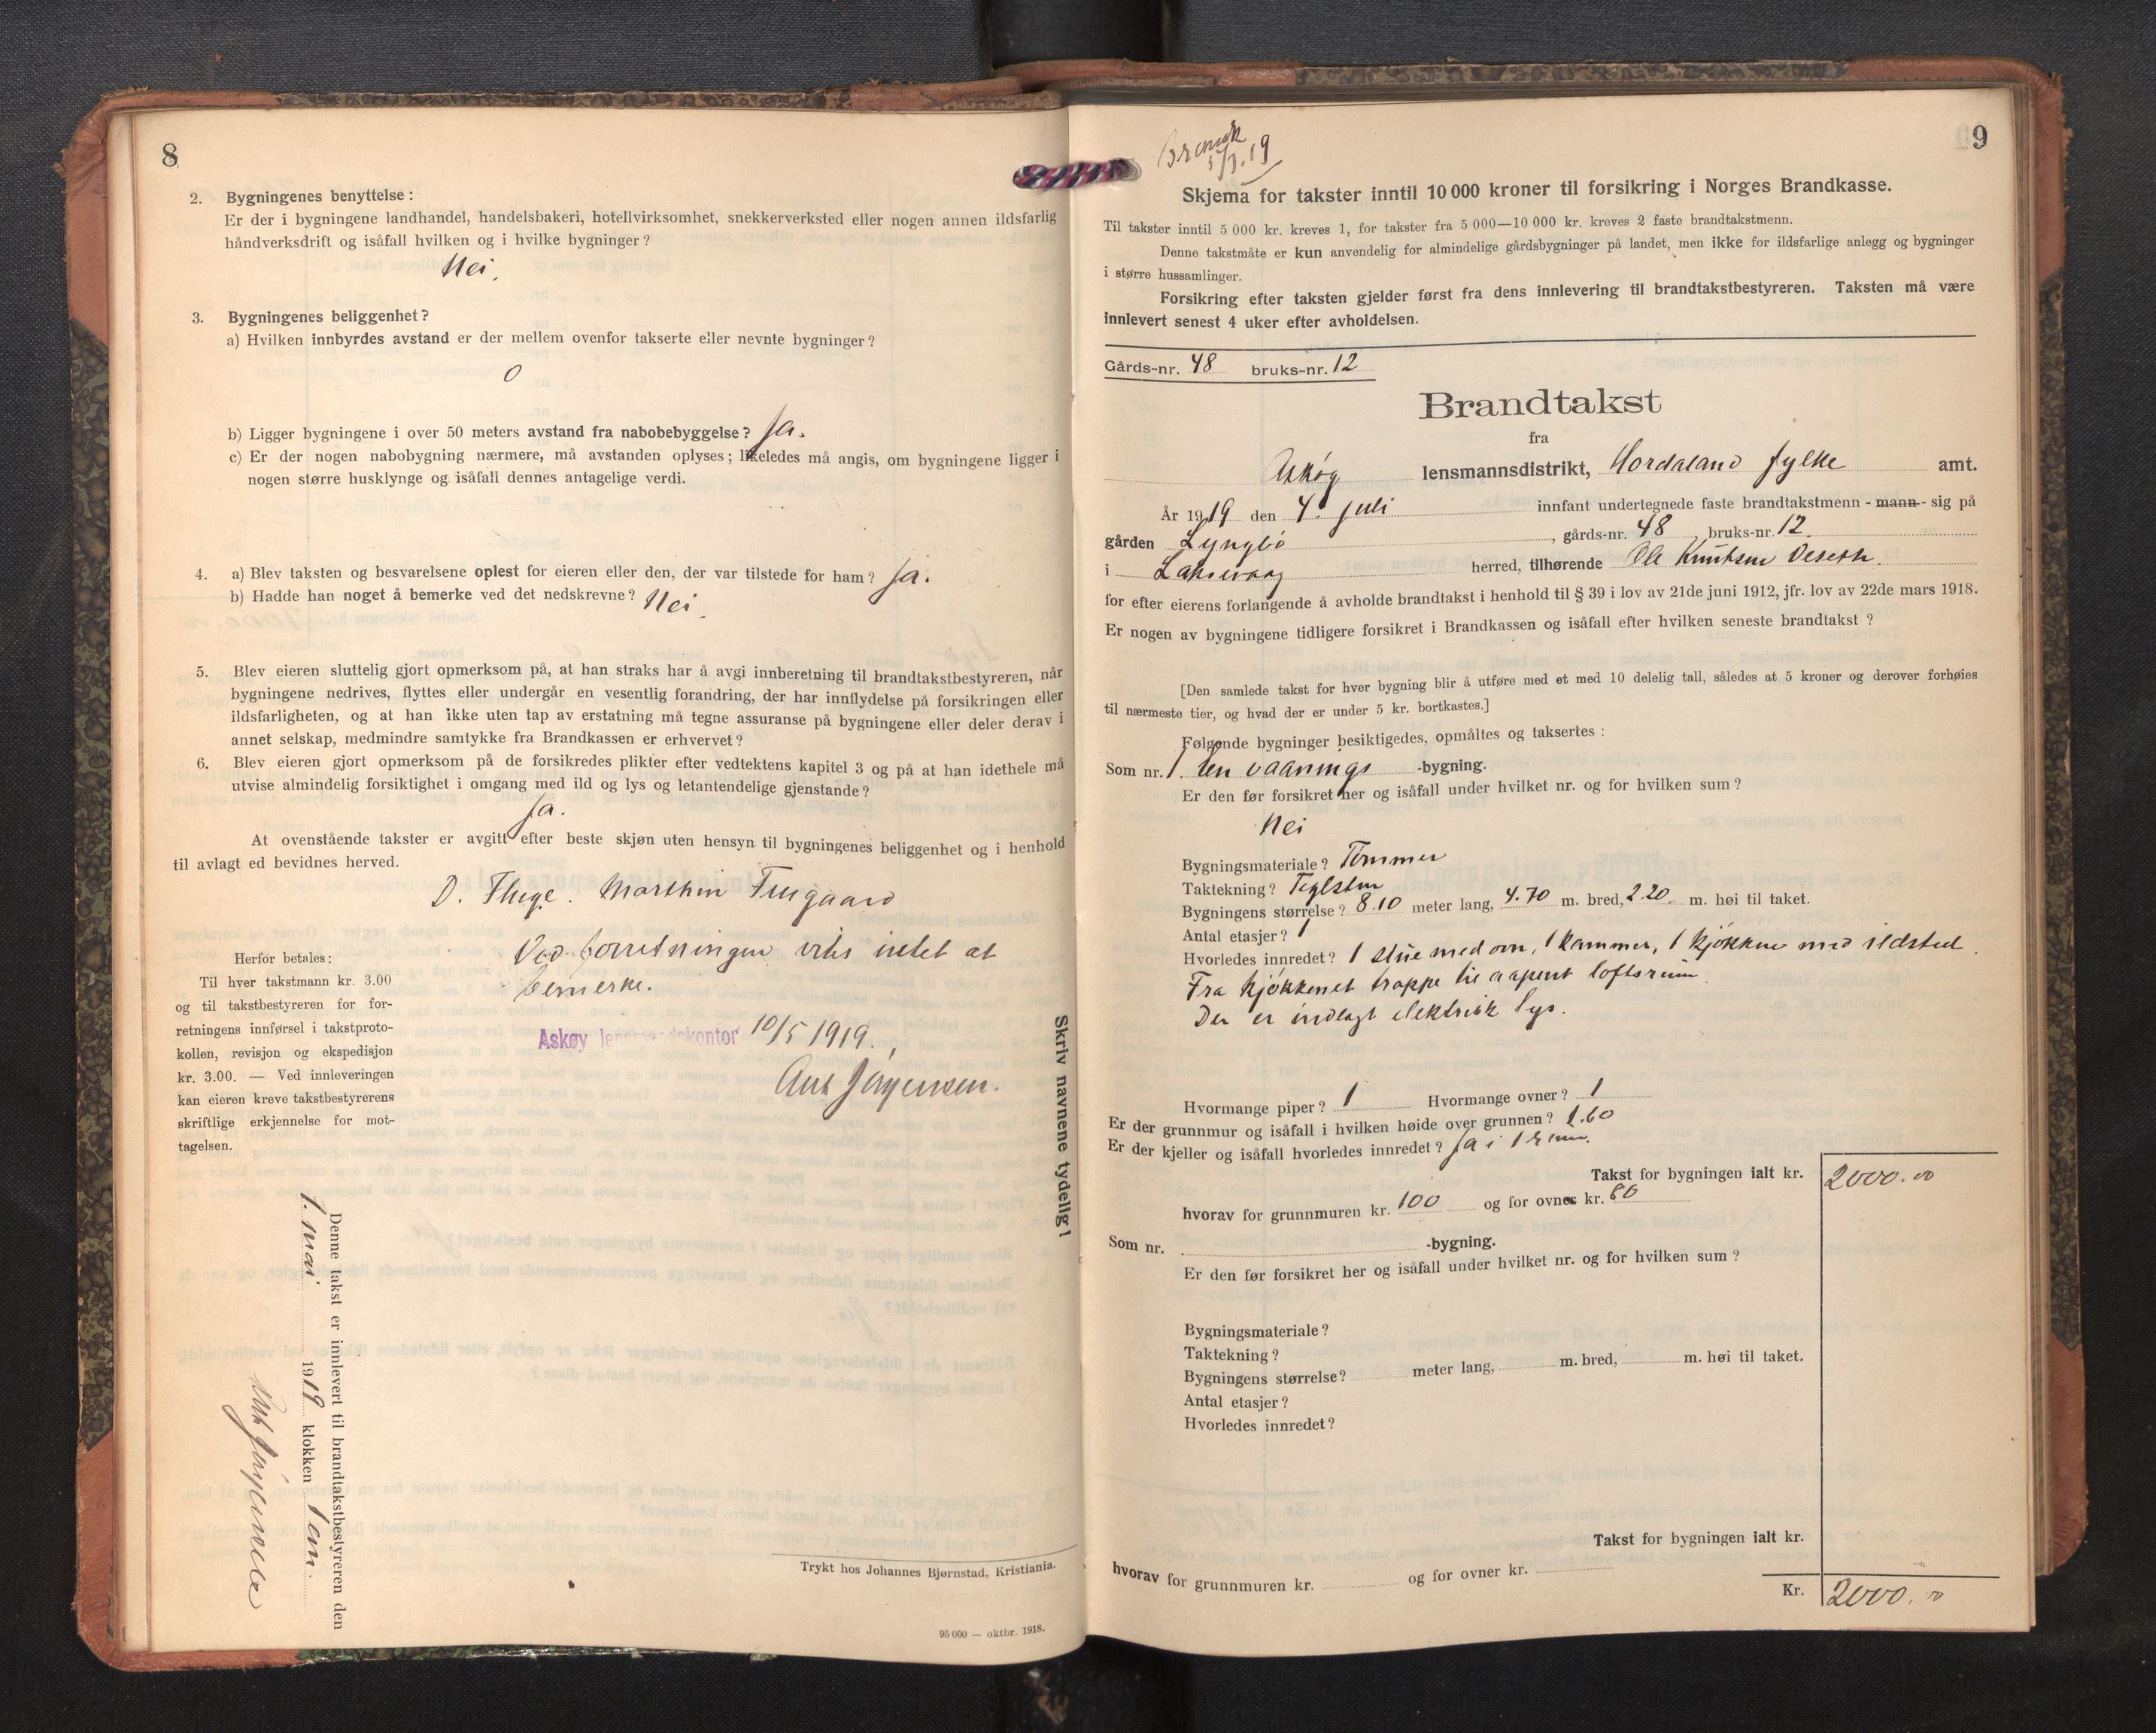 8
2. Bygningenes benyttelse:
Er der i bygningene landhandel, handelsbakeri, hotellvirksomhet, snekkerverksted eller nogen annen ildsfarlig
håndverksdrift og isåfall hvilken og i hvilke bygninger?
Nei.
3. Bygningenes beliggenhet?
a) Hvilken innbyrdes avstand er der mellem ovenfor takserte eller nevnte bygninger?
0
b) Ligger bygningene i over 50 meters avstand fra nabobebyggelse? Ja.
c) Er der nogen nabobygning nærmere, må avstanden oplyses; likeledes må angis, om bygningene ligger i
nogen større husklynge og isåfall dennes antagelige verdi.
4. a) Blev taksten og besvarelsene oplest for eieren eller den, der var tilstede for ham? Ja.
b) Hadde han noget å bemerke ved det nedskrevne? Nei.
5. Blev eieren sluttelig gjort opmerksom på, at han straks har å avgi innberetning til brandtakstbestyreren, når
bygningene nedrives, flyttes eller undergår en vesentlig forandring, der har innflydelse på forsikringen eller
ildsfarligheten, og at han ikke uten tap av erstatning må tegne assuranse på bygningene eller deler derav i
annet selskap, medmindre samtykke fra Brandkassen er erhvervet?
6. Blev eieren gjort opmerksom på de forsikredes plikter efter vedtektens kapitel 3 og på at han idethele må
utvise almindelig forsiktighet i omgang med ild og lys og letantendelige gjenstande?
Ja.
At ovenstående takster er avgitt efter beste skjøn uten hensyn til bygningenes beliggenhet og i henhold
til avlagt ed bevidnes herved.
D. Fluge. Marthin
Ved forretningen vites intet at
bemerke.
Askøy lensmannskontor 10/5 1919.
Ant Jørgensen.
Herfor betales:
Til hver takstmann kr. 3.00
og til takstbestyreren for for-
retningens innførsel i takstproto-
kollen, revisjon og ekspedisjon
kr. 3.00. — Ved innleveringen
kan eieren kreve takstbestyrerens
skriftlige erkjennelse for mot-
tagelsen.
Denne takst er innlevert til brandtakstbestyreren den
1. mai 1919 klokken 1 em.
Ant Jørgensen
Skriv navnene tydelig!
Trykt hos Johannes Bjørnstad, Kristiania.
95 000 — oktbr. 1918.
9
5/7.19
Skjema for takster inntil 10 000 kroner til forsikring i Norges Brandkasse.
Til takster inntil 5 000 kr. kreves 1, for takster fra 5 000—10 000 kr. kreves 2 faste brandtakstmenn.
Denne takstmåte er kun anvendelig for almindelige gårdsbygninger på landet, men ikke for ildsfarlige anlegg og bygninger
i større hussamlinger.
Forsikring efter taksten gjelder først fra dens innlevering til brandtakstbestyreren. Taksten må være
innlevert senest 4 uker efter avholdelsen.
Gårds-nr. 48 bruks-nr. 12
Brandtakst
fra
Askøy lensmannsdistrikt, Hordaland fylke amt.
År 1919 den 4. juli innfant undertegnede faste brandtakstmenn - mann - sig på
gården Lyngbø, gårds-nr. 48 bruks-nr. 12
i Laksevaag herred, tilhørende Ole Knutsen
for efter eierens forlangende å avholde brandtakst i henhold til § 39 i lov av 21de juni 1912, jfr. lov av 22de mars 1918.
Er nogen av bygningene tidligere forsikret i Brandkassen og isåfall efter hvilken seneste brandtakst?
[Den samlede takst for hver bygning blir å utføre med et med 10 delelig tall, således at 5 kroner og derover forhøies
til nærmeste tier, og hvad der er under 5 kr. bortkastes.]
Følgende bygninger besiktigedes, opmåltes og taksertes:
Som nr. 1. en vaanings -bygning.
Er den før forsikret her og isåfall under hvilket nr. og for hvilken sum?
Nei
Bygningsmateriale? Tømmer
Taktekning? Teglsten
Bygningens størrelse? 8.10 meter lang, 4.70 m. bred, 2.20 m. høi til taket.
Antal etasjer? 1
Hvorledes innredet? 1 stue med ovn, 1 kammer, 1 kjøkken med ildsted.
Fra kjøkkenet trappe til aapent loftsrum
Der er indlagt elektrisk lys.
Hvormange piper? 1 Hvormange ovner? 1
Er der grunnmur og isåfall i hvilken høide over grunnen? 1.60
Er der kjeller og isåfall hvorledes innredet? Ja i 1 rum.
Takst for bygningen ialt kr. 2000.00
hvorav for grunnmuren kr. 100 og for ovner kr. 80
Som nr. -bygning.
Er den før forsikret her og isåfall under hvilket nr. og for hvilken sum?
Bygningsmateriale?
Taktekning?
Bygningens størrelse? meter lang, m. bred, m. høi til taket.
Antal etasjer?
Hvorledes innredet?
Takst for bygningen ialt kr.
hvorav for grunnmuren kr. og for ovner kr.
Kr. 2000.00